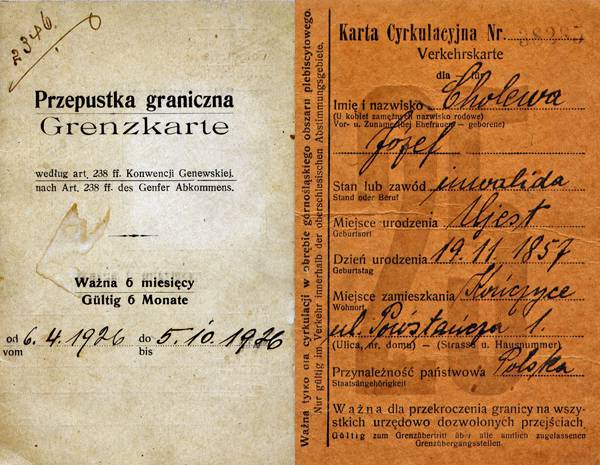 2346.
Przepustka graniczna
Grenzkarte
według art. 238 ff. Konwencji Genewskiej.
nach Art. 238 ff. des Genfer Abkommens.
Ważna 6 miesięcy
Gültig 6 Monate
od 6.4.1926 do 5.10.1926
vom bis
Ważna tylko dla cyrkulacji w obrębie górnośląskiego obszaru plebiscytowego.
Nur gültig im Verkehr innerhalb der oberschlesischen Abstimmungsgebiete.
Karta Cyrkulacyjna Nr.
Verkehrskarte
dla für
Imię i nazwisko Cholewa
(U kobiet zamężnych nazwisko rodowe)
Vor- u. Zuname (bei Ehefrauen - geborene)
Józef
Stan lub zawód inwalida
Stand oder Beruf
Miejsce urodzenia Ujest
Geburtsort
Dzień urodzenia 19.11.1857
Geburtstag
Miejsce zamieszkania Kończyce
Wohnort
ul. Powstańcza 1.
(Ulica, nr. domu) - (Strasse u. Hausnummer)
Przynależność państwowa Polska
Staatsangehörigkeit
Ważna dla przekroczenia granicy na wszy-
stkich urzędowo dozwolonych przejściach,
Gültig zum Grenzübertritt über alle amtlich zugelassenen
Grenzübergangsstellen.